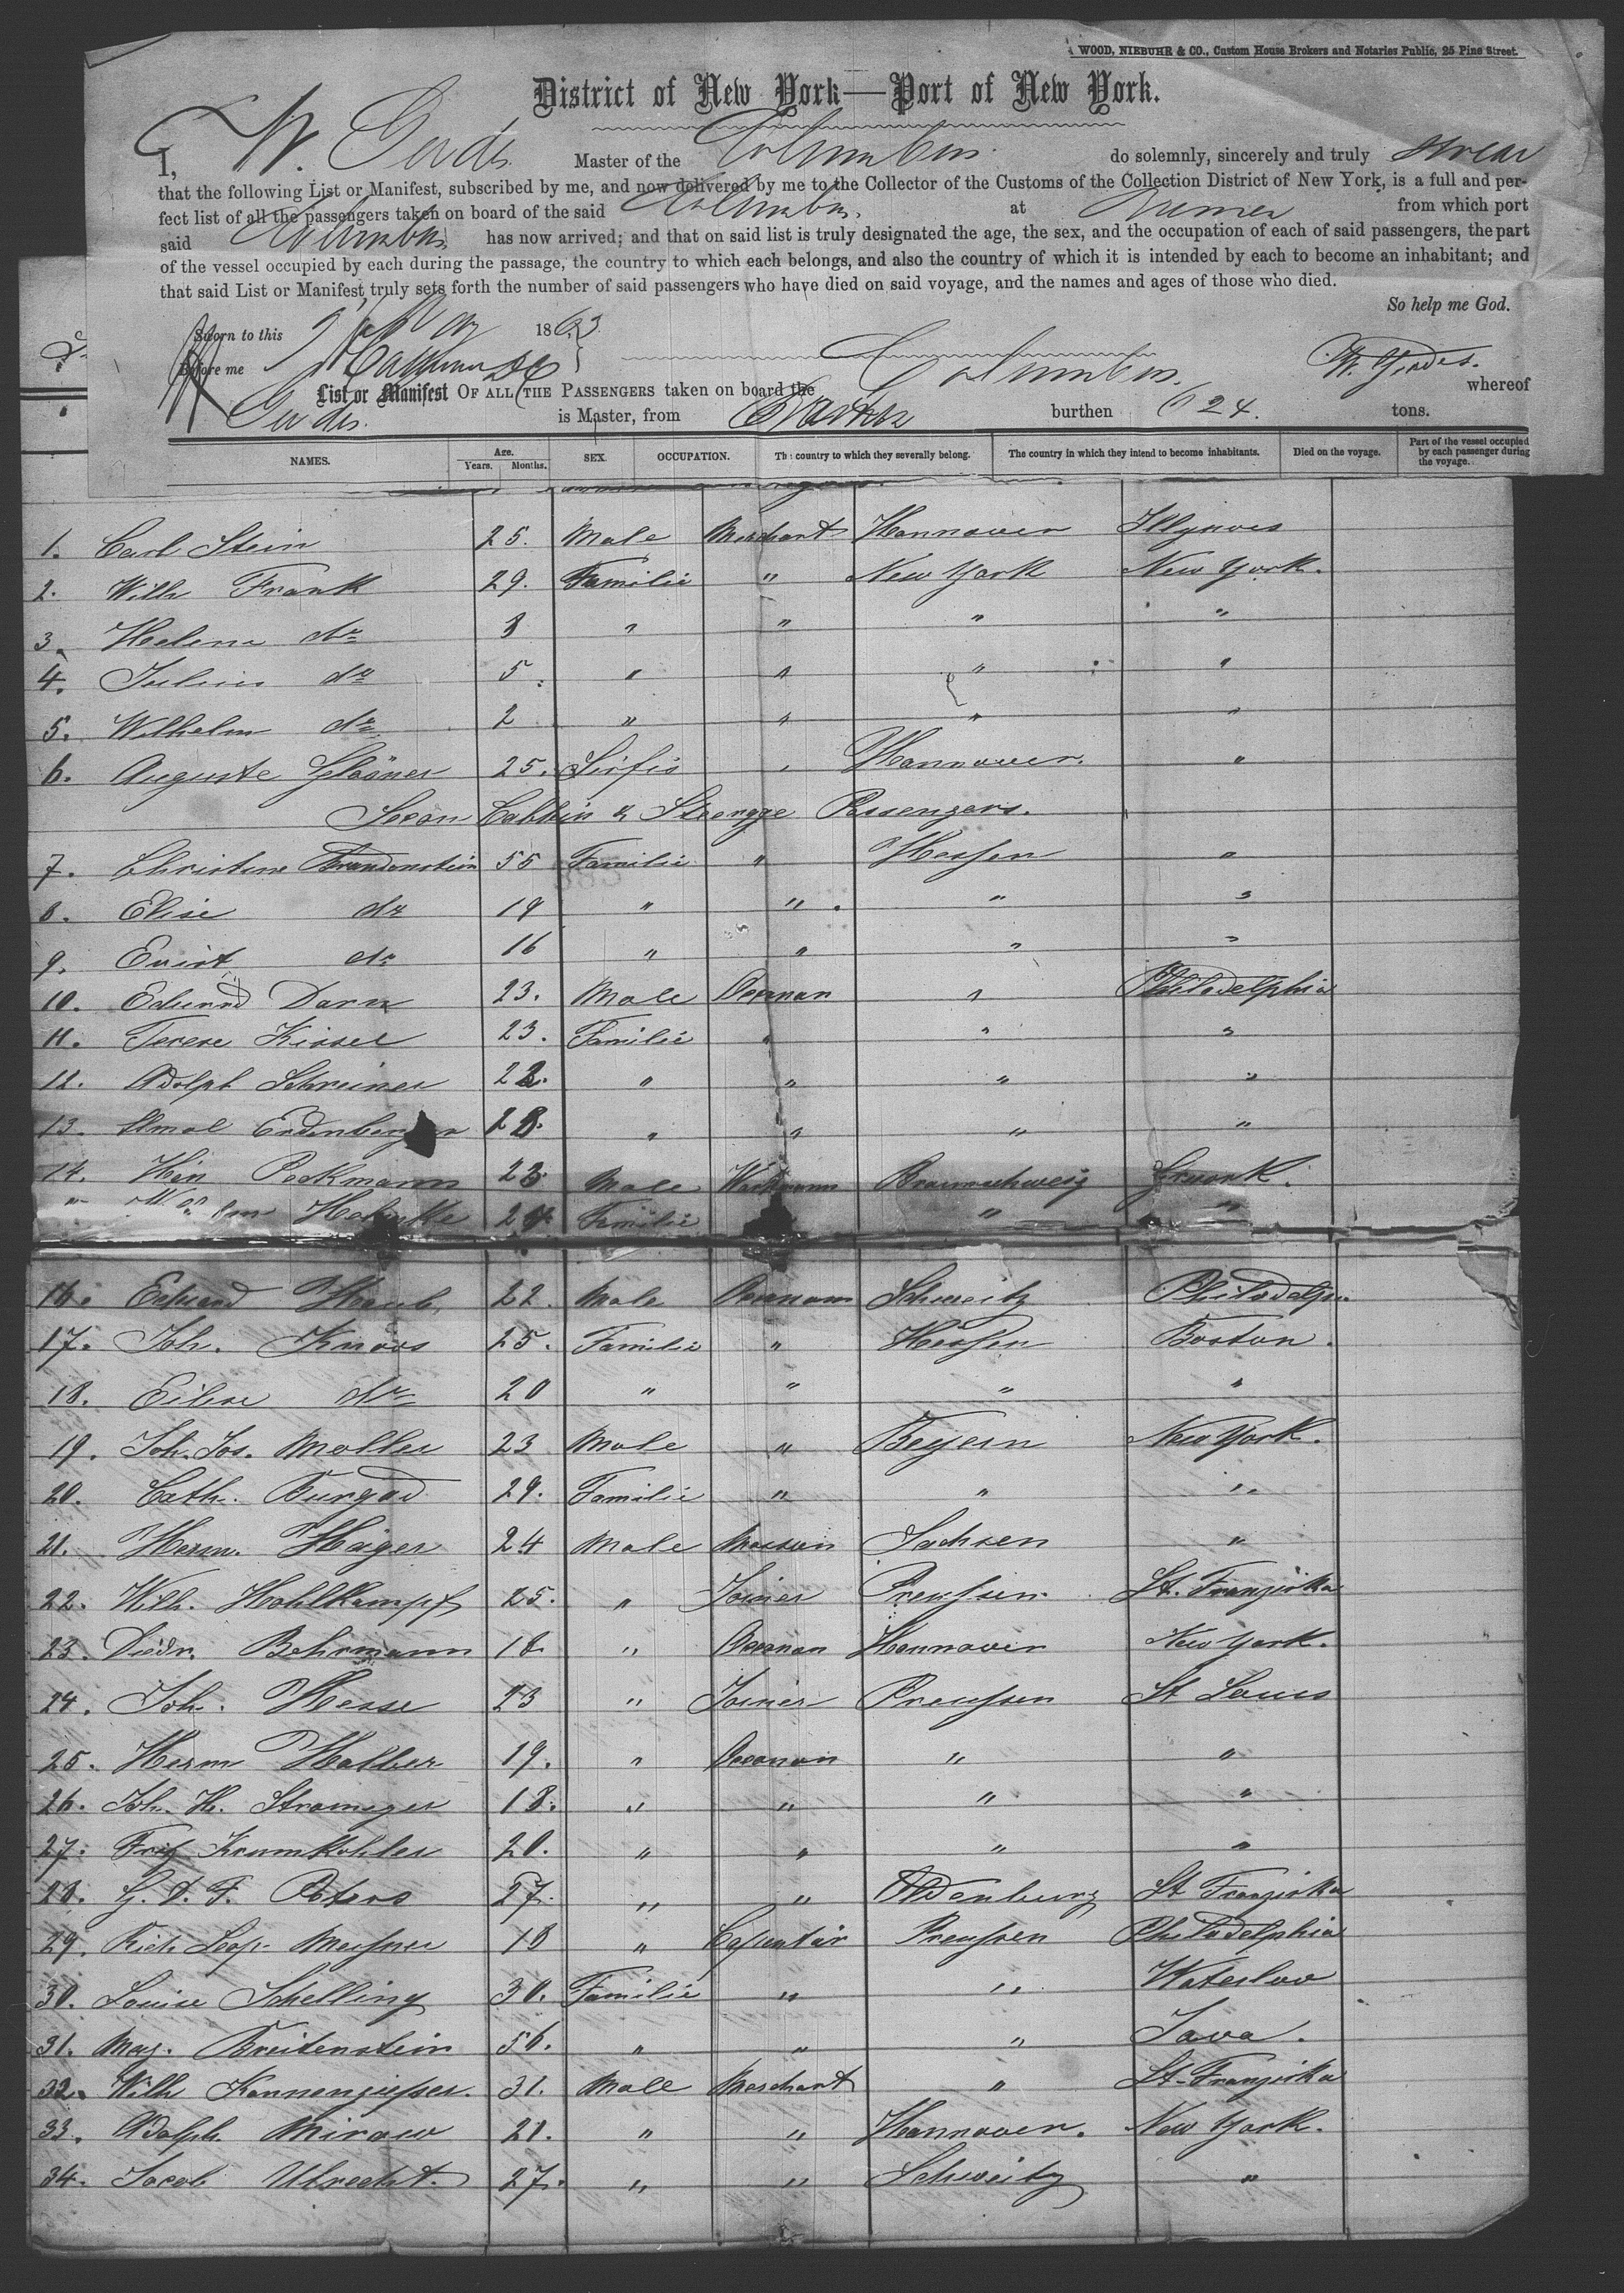 WOOD, NIEBUHR & CO., Custom House Brokers and Notaries Public, 25 Pine Street.
District of New York—Port of New York.
I, W. Gerdes Master of the Columbus do solemnly, sincerely and truly swear
that the following List or Manifest, subscribed by me, and now delivered by me to the Collector of the Customs of the Collection District of New York, is a full and per-
fect list of all the passengers taken on board of the said Columbus. at Bremen from which port
said Columbus has now arrived; and that on said list is truly designated the age, the sex, and the occupation of each of said passengers, the part
of the vessel occupied by each during the passage, the country to which each belongs, and also the country of which it is intended by each to become an inhabitant; and
that said List or Manifest truly sets forth the number of said passengers who have died on said voyage, and the names and ages of those who died.
So help me God.
Sworn to this 9 May 1863
Before me W. Gerdes.
List or Manifest OF ALL THE PASSENGERS taken on board the Columbus. whereof
Gerdes. is Master, from Bremen burthen 624. tons.
NAMES. Age. Years. Months. SEX. OCCUPATION. The country to which they severally belong. The country in which they intend to become inhabitants. Died on the voyage. Part of the vessel occupied by each passenger during the voyage.
1. Carl Stein 25. Male Merchant Hannover Illynoes
2. Wilh Frank 29. Familie " New York New York.
3. Helena do 8 " " " "
4. Julius do 5 " " " "
5. Wilhelm do 2 " " " "
6. Auguste Glasner 25. " Hannover. "
Secon Cabbin & Steerage Passengers.
7. Christine Brandenstein 55 Familie " Hessen "
8. Elise do 19 " " " "
9. do 16 " " " "
10. Eduard Dorn 23. Male Oeconan " Philadelphia
11. Terese Kissel 23. Familie " " "
12. Adolph Schreiner 22. " " " "
13. Amal 28. " " " "
14. Hein Pockmann 23 Male Braunschweig
" Hohnke 24 Familie " "
16. Eduard 22. Male Oeconom Schweitz Philadelph.
17. Joh. Knoos 25. Familie " Hessen Boston.
18. Eilese do 20 " " " "
19. Joh. Jos. Moller 23 Male " Beyern New York.
20. Cath. Burgod 29. Familie " " "
21. Herm. Häger 24 Male Masson Sachsen "
22. Wilh. Hohlkampf 25. " Joiner Preussen St. Franziska
23. Diedr. Behrmann 18 " Oeconan Hannover New York.
24. Joh. Hesse 23 " Joiner Preussen St Louis
25. Herm Holber 19. " Oeconan " "
26. Joh. H. Strameyer 18. " " " "
27. Fritz Krumkohler 20. " " " "
28. G. D. F. Peters 27. " " Oldenburg St Franziska
29. Rich Leop. Meissner 18 " Capentär Preussen Philadelphia
30. Louise Schelling 30. Familie " " Waterloo
31. Mag. Breitenstein 56. " " " Iova.
32. Wilh Kannengiesser. 31. Male Merchant " St. Franziska
33. Adolph. Mirow 21. " " Hannover. New York.
34. Jacob Utrecht. 27. " " Schweitz "